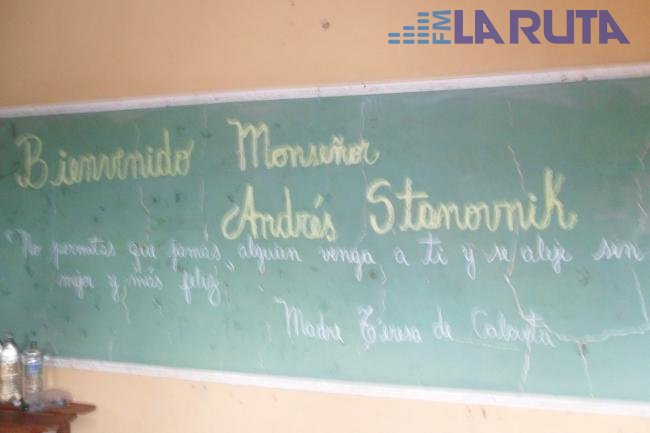 FM LA RUTA
Bienvenido Monseñor
Andrés Stanovnik
"No permitas que jamás alguien venga a ti y se aleje sin
mejor y más feliz"
Madre Teresa de Calcuta